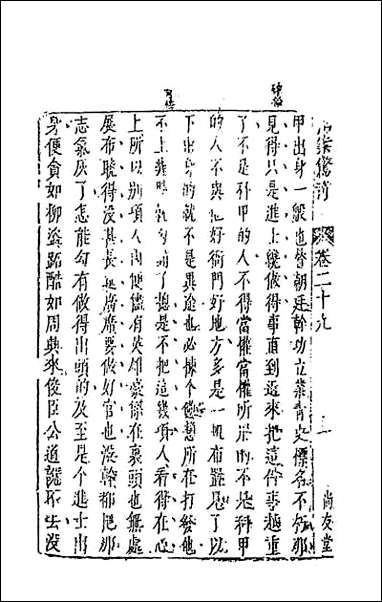 拍案驚奇 卷二十九
尚友堂
甲出身一般也替朝廷幹功立業青史標名不朽那
見得只是進士纔做得事直到近來把這件事越重
了不是科甲的人不得當權當權所用的不是科甲
的人不與他好衙門好地方多是一帆布置見了以
下出身的就不是異途也必揀個憊懶所在打發他
不上幾時就勾銷了總是不把這幾項人看得在心
上所以別項人內便儘有英雄豪傑在裏頭也無處
展布曉得沒甚長筵廣席要做好官也沒幹都把那
志氣灰了怎能勾有做得出頭的及至是個進士出
身便貪如柳盜跖酷如周興來俊臣公道說不去沒